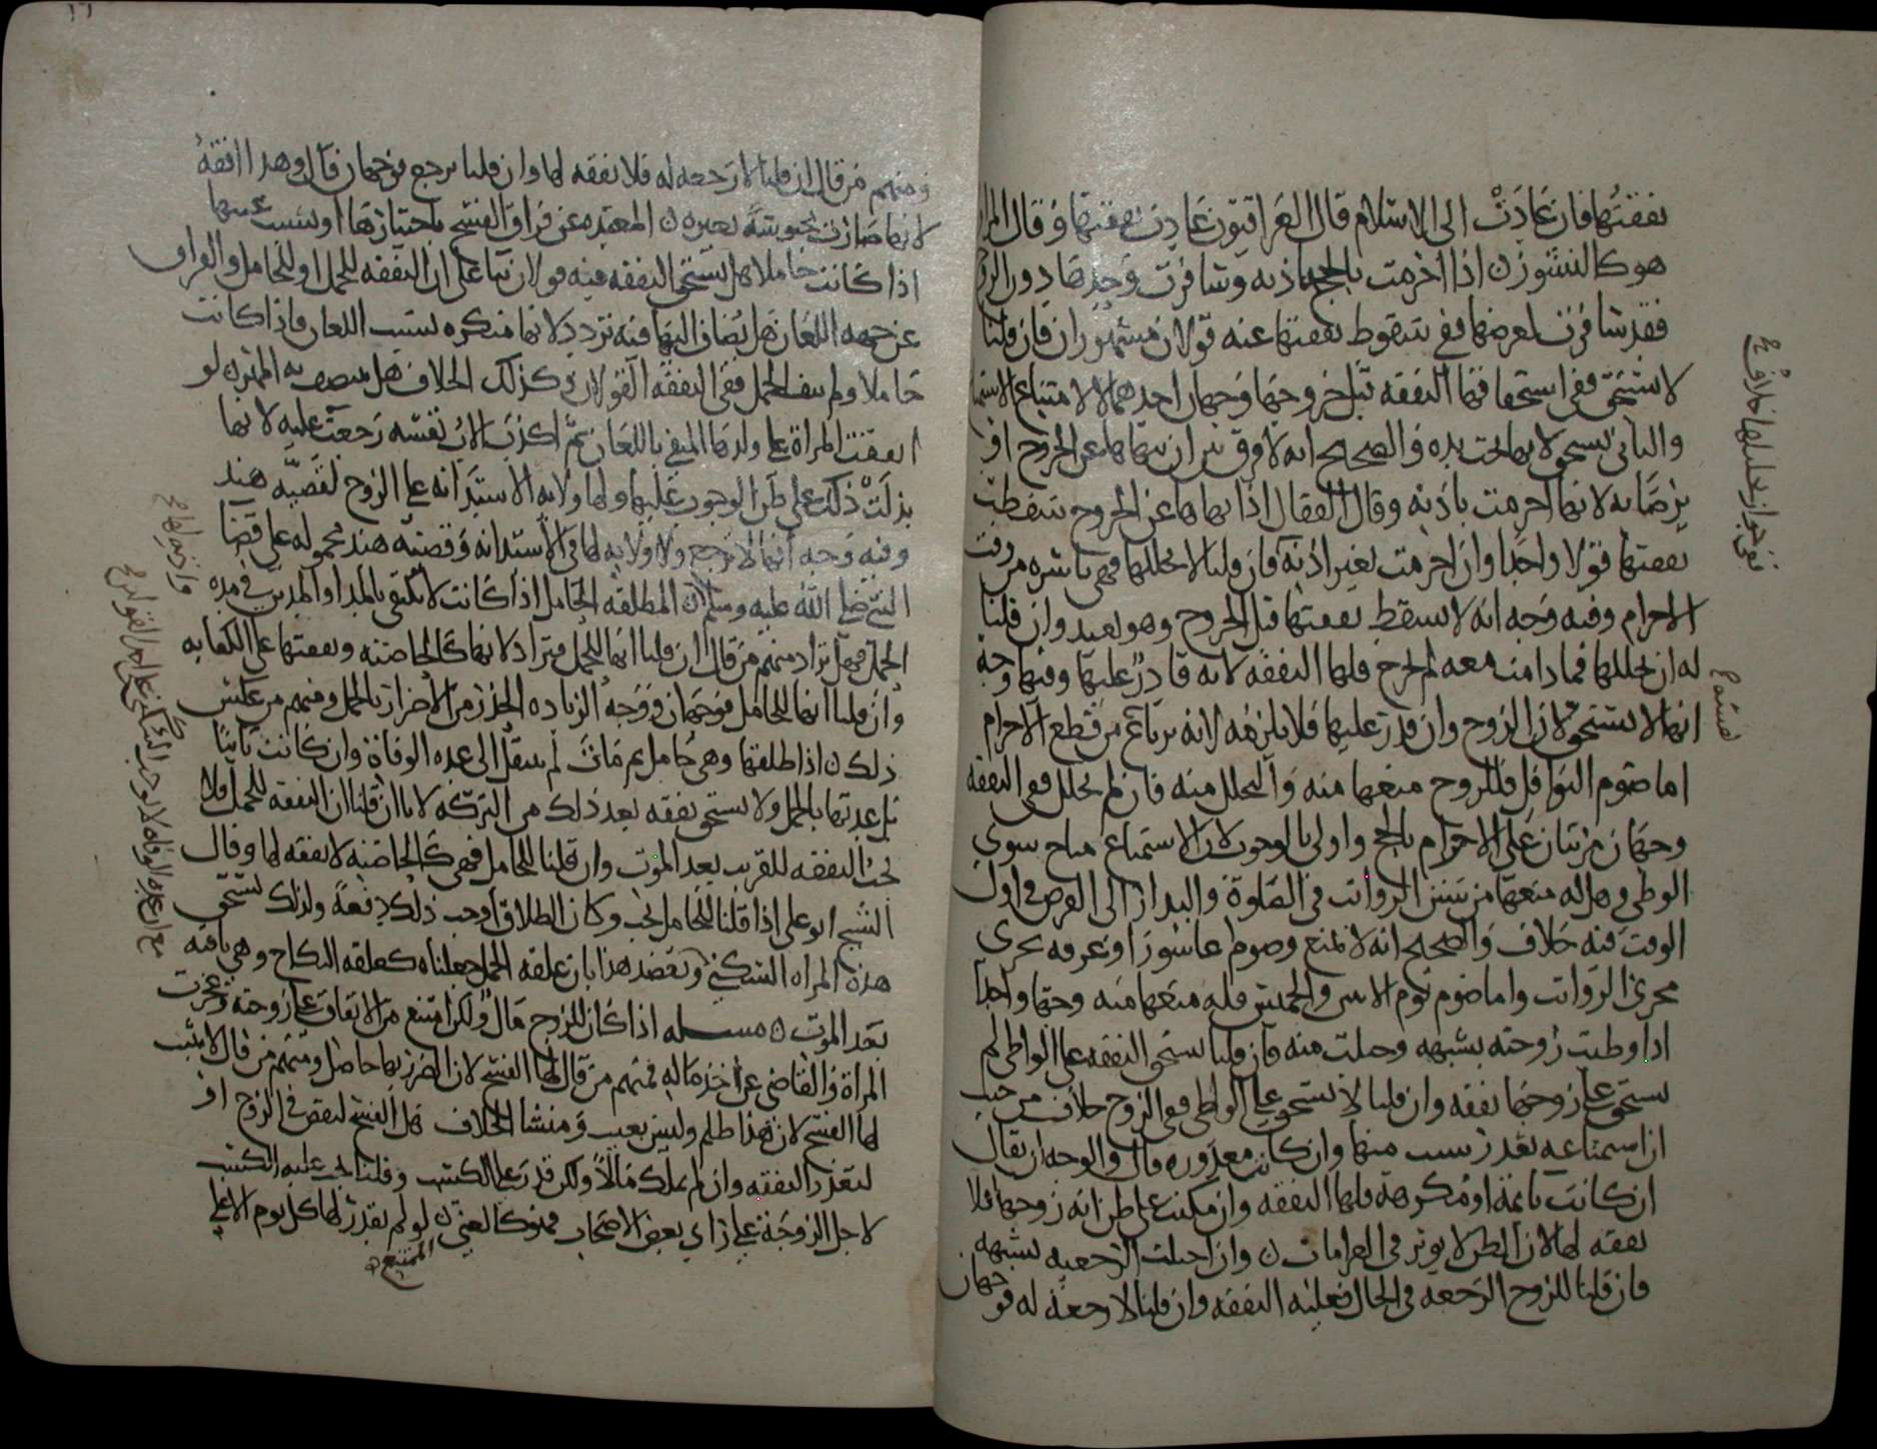 نفقتها فان عادت الى الاسلام قال العراقيون عادت نفقتها وقال المراوزة
هو كالنشوز ن اذا احرمت بالحج باذنه وسافرت وحدها دون الزوج
فقد سافرت لغرضها ففي سقوط نفقتها عنه قولان مشهوران فان قلنا
لا تستحق ففي استحقاقها النفقه قبل خروجها وجهان احدهما لا لامتناع الاستمتاع
والثاني تستحق لانها تحت يده والصحيح انه لا فرق بين ان ينهاها عن الخروج او
يرضا به لانها احرمت باذنه وقال القفال اذا نهاها عن الخروج سقطت
نفقتها قولا واحدا وان احرمت بغير اذنه فان قلنا لا يحللها فهي ناشزه من وقت
الاحرام وفيه وجه انه لا تسقط نفقتها قبل الخروج وهو بعيد وان قلنا
له ان يحللها فما دامت معه لم تخرج فلها النفقه لانه قادر عليها وفيها وجه
انها لا تستحق لان الزوج وان قدر عليها فلا يلزمه لانه يرتاع من قطع الاحرام
اما صوم النوافل فللزوج منعها منه والتحلل منه فان لم يحلل ففي النفقه
وجهان مرتبان على الاحرام بالحج واولى بالوجوب لان الاستمتاع مباح سوى
الوطي وهل له منعها من سنن الرواتب في الصلوة والبدار الى الفرض في اول
الوقت فيه خلاف والصحيح انه لا يمنع وصوم عاشورا وعرفه يجري
مجرى الرواتب واما صوم يوم الاثنين والخميس فله منعها منه وجها واحدا
اذا وطيت زوجته بشبهه وحملت منه فان قلنا تستحق النفقه على الواطي لم
تستحق على زوجها نفقه وان قلنا لا تستحق على الواطي ففي الزوج خلاف من حيث
ان استمتاعه تعذر بسبب منها وان كانت معذوره قال والوجه ان يقال
ان كانت نائمة او مكرهة فلها النفقه وان مكنت على ظن انه زوجها فلا
نفقه لها لان الظن لا يوثر في الغرامات ن وان احبلت الرجعيه بشبهه
فان قلنا للزوج الرجعه في الحال فعليه النفقه وان قلنا لا رجعة له فوجهان
ومنهم من قال ان قلنا لا رجعه له فلا نفقه لها وان قلنا يرجع فوجهان قال وهذا افقه
لانها صارت محبوسة بغيره ن المعتده عن فراق الفسخ باختيارها او بسبب عيبها
اذا كانت حاملا هل تستحق النفقه فيه قولان بنا على ان النفقه للحمل او للحامل والفراق
عن جهه اللعان هل يضاف اليها فيه تردد لانها منكره لسبب اللعان فاذا كانت
حاملا ولم ينف الحمل ففي النفقه القولان وكذلك الخلاف
انفقت المراة على ولدها المنفي باللعان ثم اكذب الاب نفسه رجعت عليه لانها
بذلت ذلك على ظن الوجوب عليها ولها ولايه الاستدانه على الزوج لقصه هند
وفيه وجه انها لا ترجع ولا ولايه لها في الاستدانه وقصه هند محموله على قضا
النبي صلى الله عليه وسلم ن المطلقه الحامل اذا كانت لا تكتفي بالمد او المدين في مده
الحمل فهل تزاد منهم من قال ان قلنا انها للحمل فتزاد لانها كالحاضنه ونفقتها على الكفايه
وان قلنا انها للحامل فوجهان ووجه الزياده الحذر من الاضرار بالحمل ومنهم من عكس
ذلك ن اذا طلقها وهي حامل ثم مات لم تنتقل الى عده الوفاة وان كانت بائنا
بل عدتها بالحمل ولا تستحق نفقه بعد ذلك من التركه لانا ان قلنا ان النفقه للحمل فلا
تجب النفقه للقريب بعد الموت وان قلنا للحامل فهي كالحاضنه لا نفقه لها وقال
الشيخ ابو علي اذا قلنا للحامل تجب وكان الطلاق اوجب ذلك دفعة ولذلك تستحق
هذه المراه السكنى ويعضد هذا بان علقه الحمل جعلناه كعلقه النكاح وهي باقيه
بعد الموت ن مسله اذا كان للزوج مال ولكن امتنع من الانفاق على زوجته وعجزت
المراة والقاضي عن اخذ ماله فمنهم من قال لها الفسخ لان الضرر بها حاصل ومنهم من قال لا يثبت
لها الفسخ لان هذا ظلم وليس بعيب ومنشا الخلاف هل الفسخ لنقص في الزوج او
لتعذر النفقه وان لم يملك مالا ولكن قدر على الكسب وقلنا يجب عليه الكسب
لاجل الزوجة على راي بعض الاصحاب فهو كالغني ن لو لم يقدر لها كل يوم الا على
الممتنع